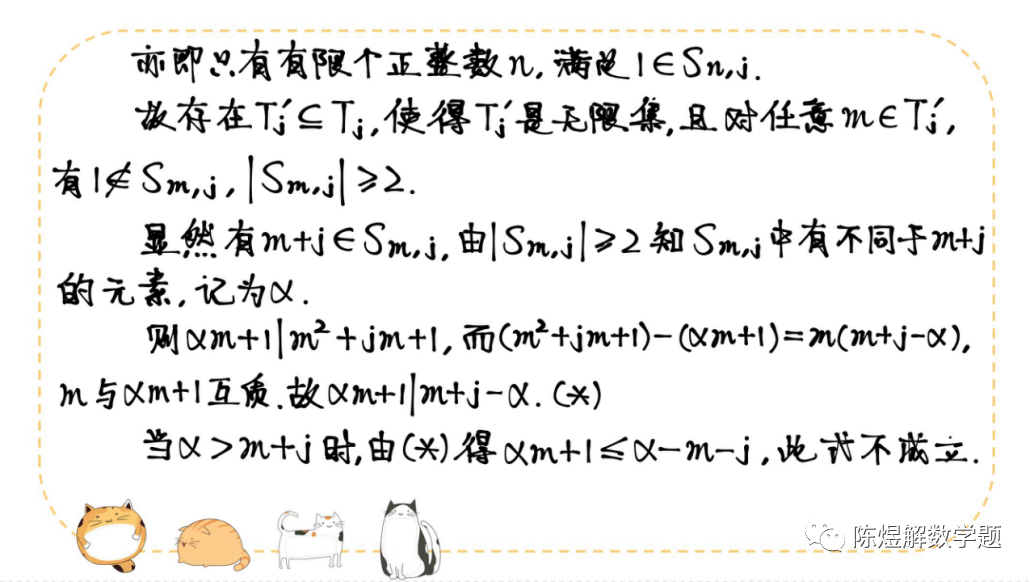 亦即只有有限个正整数n,满足1∈Sn,j.
故存在Tj′⊆Tj,使得Tj′是无限集,且对任意m∈Tj′,
有1∉Sm,j,|Sm,j|≥2.
显然有m+j∈Sm,j,由|Sm,j|≥2知Sm,j中有不同于m+j
的元素,记为α.
则αm+1|m²+jm+1,而(m²+jm+1)-(αm+1)=m(m+j-α),
m与αm+1互质.故αm+1|m+j-α.(*)
当α>m+j时,由(*)得αm+1≤α-m-j,此式不成立.
陈煜解数学题